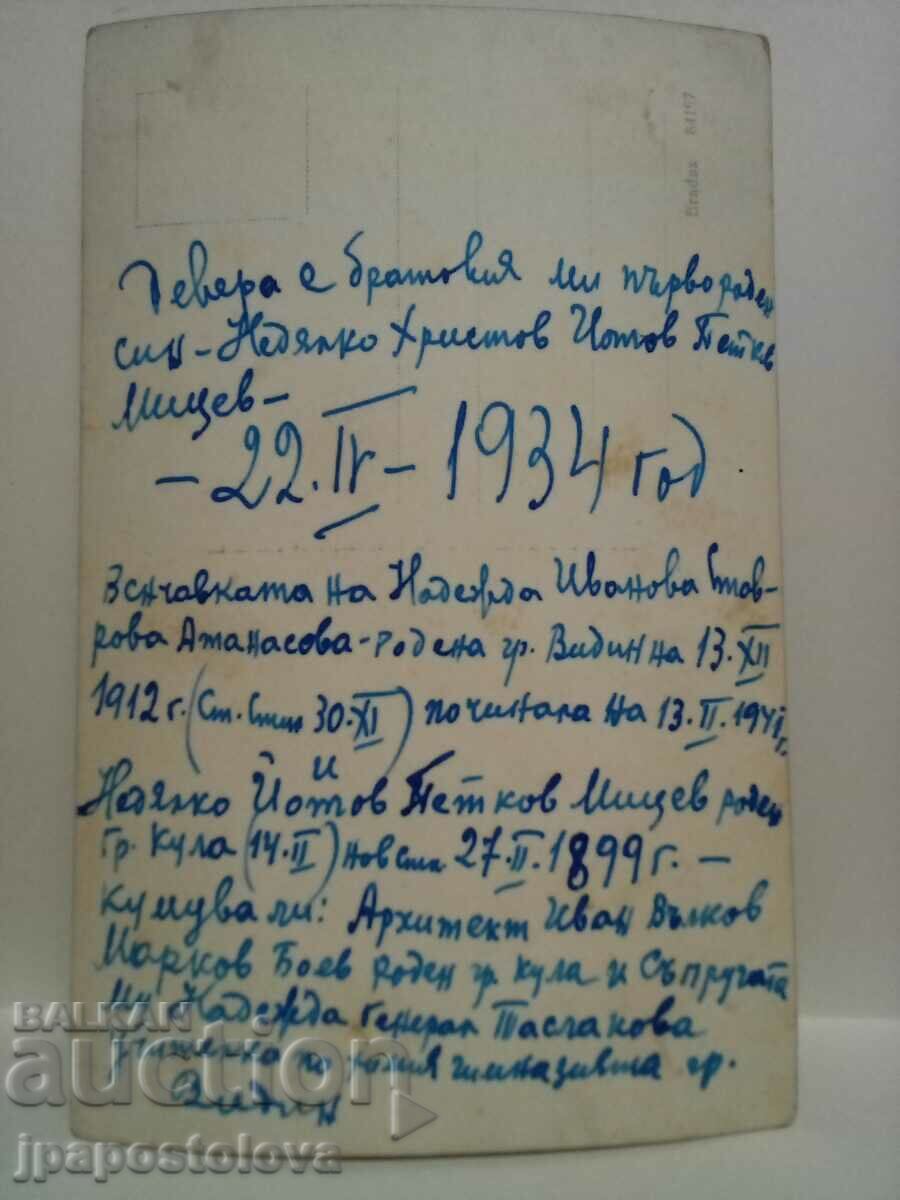 Bradax 84197
Девера е братовия ми първороден
син - Недялко Христов Йотов Петков
Мицев -
- 22. IV - 1934 год
Венчавката на Надежда Иванова Став-
рова Атанасова - родена гр. Видин на 13. XII
1912 г. (Ст. Стил 30. XI) починала на 13. II. 1941 г.
и
Недялко Йотов Петков Мицев роден
гр. Кула (14. II) нов стил 27. II. 1899 г. -
Кумували: Архитект Иван Вълков
Марков Боев роден гр. Кула и съпругата
му Надежда Генерал Таслакова
учителка по химия гимназията гр.
Видин
BALKAN
auction
jpapostolova